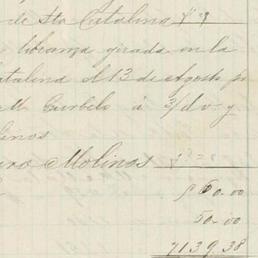 de Sta Catalina
libranza girada en la
Catalina el 13 de Agosto p
M Curbelo á 3/dv y
linos
Molinos
50.00
50.00
7139.38